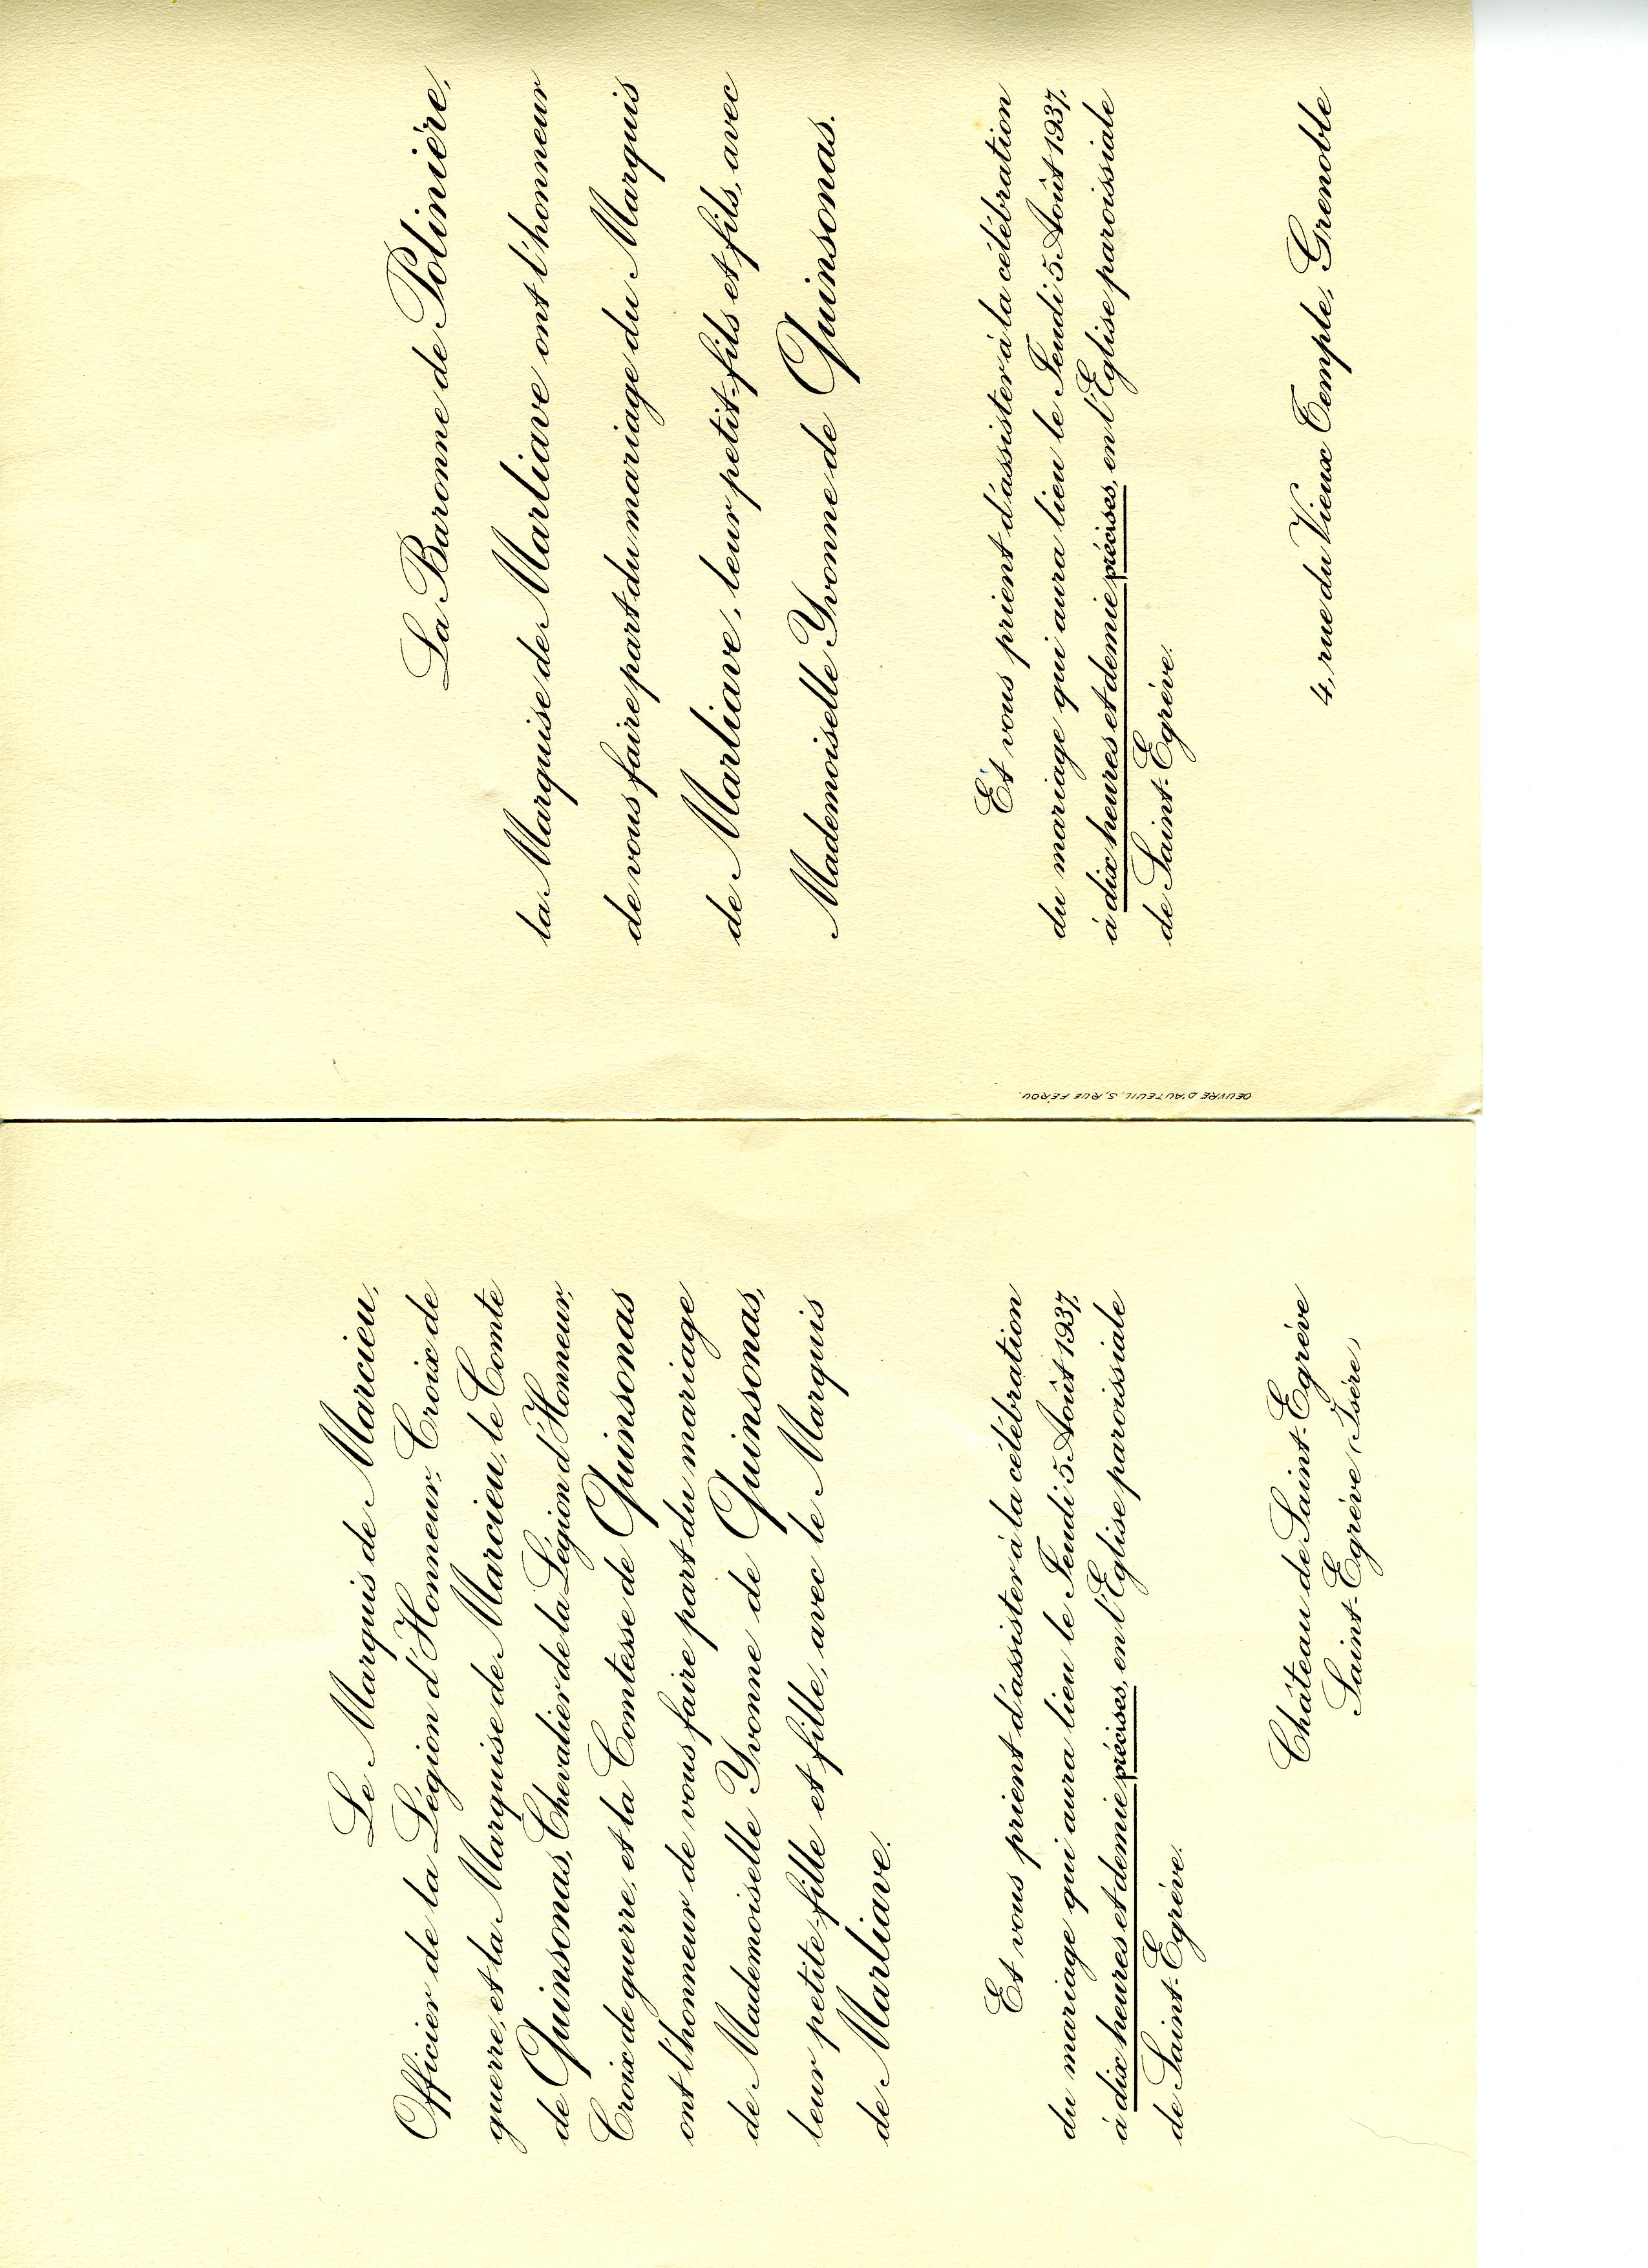 Le Marquis de Marcieu,
Officier de la Légion d'Honneur, Croix de
guerre, et la Marquise de Marcieu, le Comte
de Quinsonas, Chevalier de la Légion d'Honneur,
Croix de guerre, et la Comtesse de Quinsonas
ont l'honneur de vous faire part du mariage
de Mademoiselle Yvonne de Quinsonas,
leur petite-fille et fille, avec le Marquis
de Marliave.
Et vous prient d'assister à la célébration
du mariage qui aura lieu le Jeudi 5 Août 1937,
à dix heures et demie précises, en l'Eglise paroissiale
de Saint-Egrève.
Château de Saint-Egrève
Saint-Egrève (Isère)
La Baronne de Polinière,
la Marquise de Marliave ont l'honneur
de vous faire part du mariage du Marquis
de Marliave, leur petit-fils et fils, avec
Mademoiselle Yvonne de Quinsonas.
Et vous prient d'assister à la célébration
du mariage qui aura lieu le Jeudi 5 Août 1937,
à dix heures et demie précises, en l'Eglise paroissiale
de Saint-Egrève.
4, rue du Vieux Temple, Grenoble
ŒUVRE D'AUTEUIL, 5, RUE FÉROU.